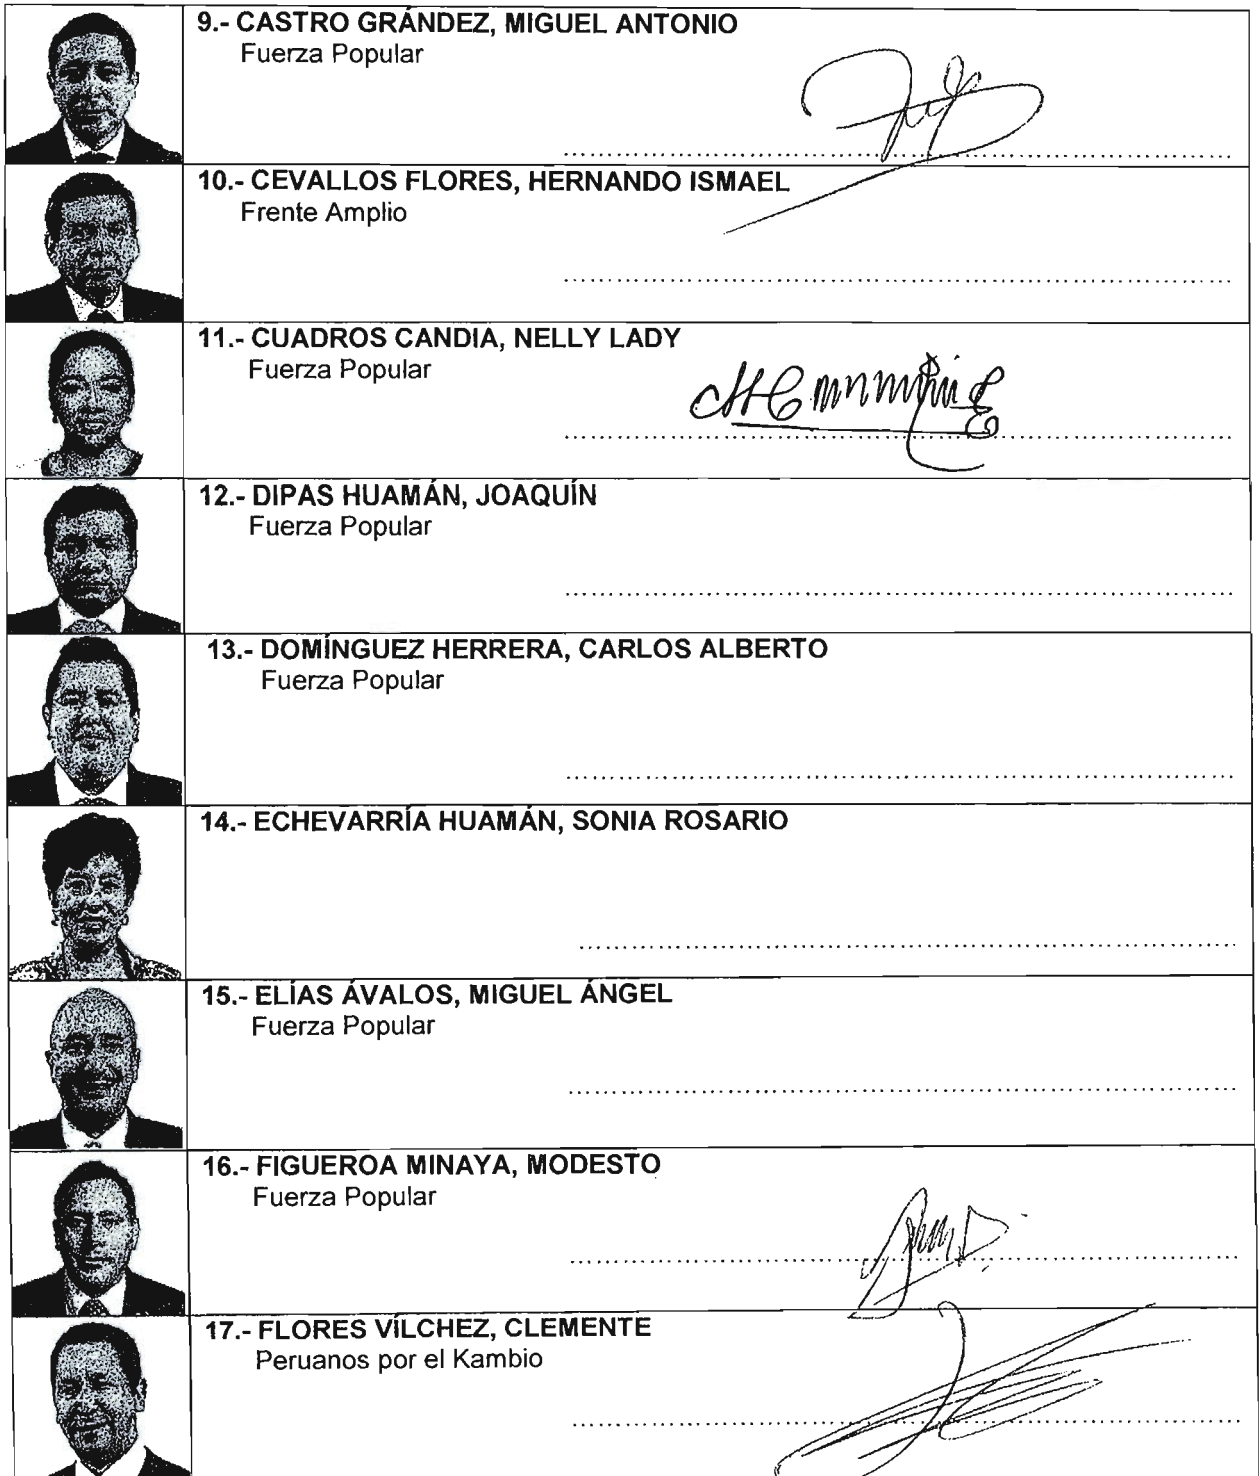 9.- CASTRO GRÁNDEZ, MIGUEL ANTONIO
Fuerza Popular
10.- CEVALLOS FLORES, HERNANDO ISMAEL
Frente Amplio
11.- CUADROS CANDIA, NELLY LADY
Fuerza Popular
12.- DIPAS HUAMÁN, JOAQUÍN
Fuerza Popular
13.- DOMÍNGUEZ HERRERA, CARLOS ALBERTO
Fuerza Popular
14.- ECHEVARRÍA HUAMÁN, SONIA ROSARIO
15.- ELÍAS ÁVALOS, MIGUEL ÁNGEL
Fuerza Popular
16.- FIGUEROA MINAYA, MODESTO
Fuerza Popular
17.- FLORES VÍLCHEZ, CLEMENTE
Peruanos por el Kambio